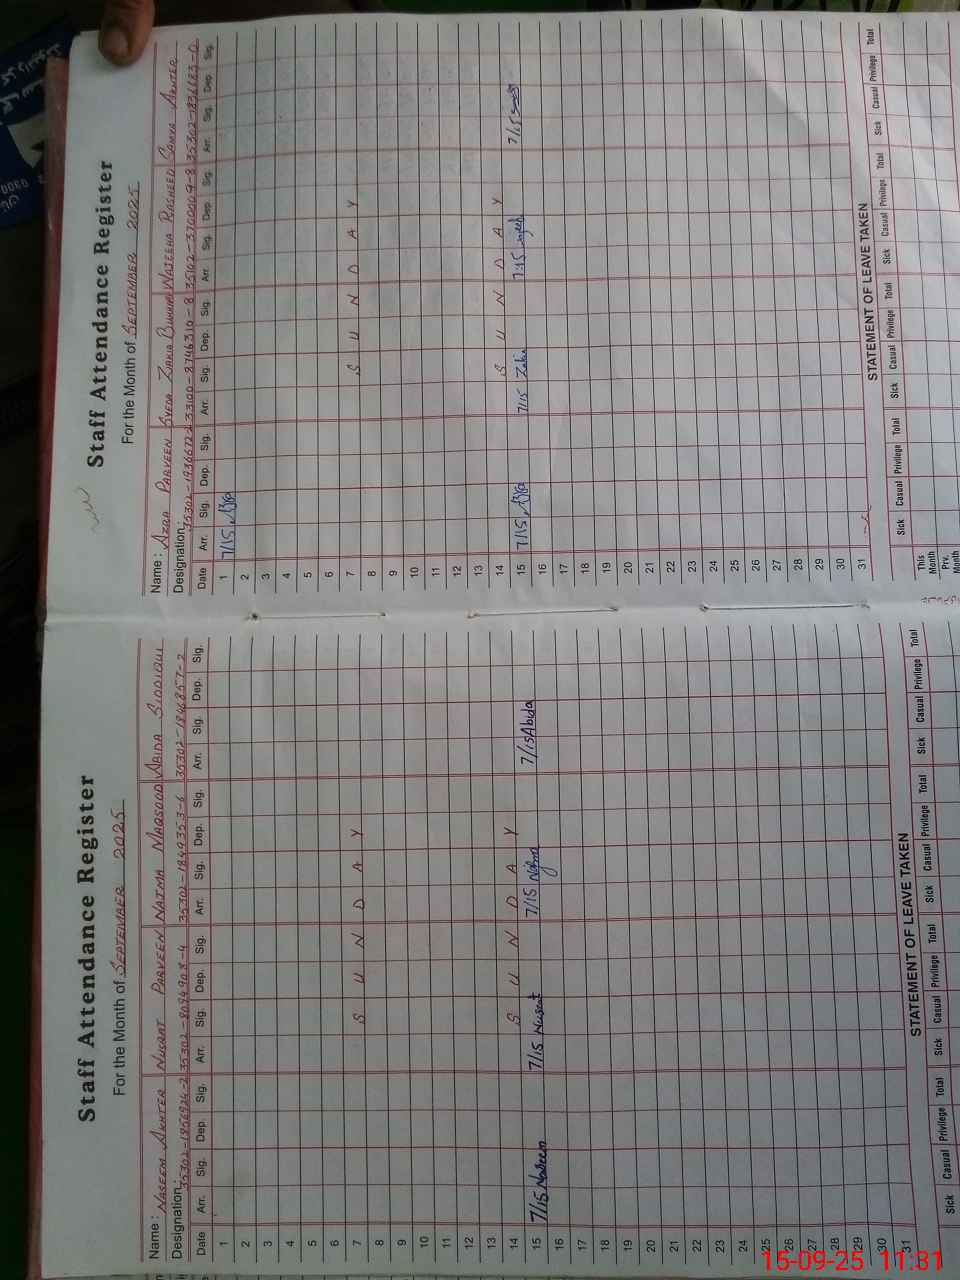 Staff Attendance Register
For the Month of SEPTEMBER 2025
Name : NASEEM AKHTER NUSRAT PARVEEN NAJMA MAQSOOD ABIDA SIDDIQUI
Designation : 35302-1956924-2 35302-8094908-4 35302-1849353-6 35302-1946857-2
Date Arr. Sig. Dep. Sig. Arr. Sig. Dep. Sig. Arr. Sig. Dep. Sig. Arr. Sig. Dep. Sig.
1
2
3
4
5
6
7 S U N D A Y
8
9
10
11
12
13
14 S U N D A Y
15 7/15 Naseem 7/15 Nusrat 7/15 Najma 7/15 Abida
16
17
18
19
20
21
22
23
24
25
26
27
28
29
30
31
STATEMENT OF LEAVE TAKEN
Sick Casual Privilege Total Sick Casual Privilege Total Sick Casual Privilege Total Sick Casual Privilege Total
Staff Attendance Register
For the Month of SEPTEMBER 2025
Name : AZRA PARVEEN SYEDA ZAKIA BUKHARI WASEEHA RASHEED SAMRA AKHTER
Designation : 35302-1936672-2 33100-8746310-8 35102-3700009-8 35302-1836683-0
Date Arr. Sig. Dep. Sig. Arr. Sig. Dep. Sig. Arr. Sig. Dep. Sig. Arr. Sig. Dep. Sig.
1 7/15 Azra
2
3
4
5
6
7 S U N D A Y
8
9
10
11
12
13
14 S U N D A Y
15 7/15 Azra 7/15 Zakia 7:15 7/15
16
17
18
19
20
21
22
23
24
25
26
27
28
29
30
31
STATEMENT OF LEAVE TAKEN
Sick Casual Privilege Total Sick Casual Privilege Total Sick Casual Privilege Total Sick Casual Privilege Total
This Month
Prv. Month
15-09-25 11:31